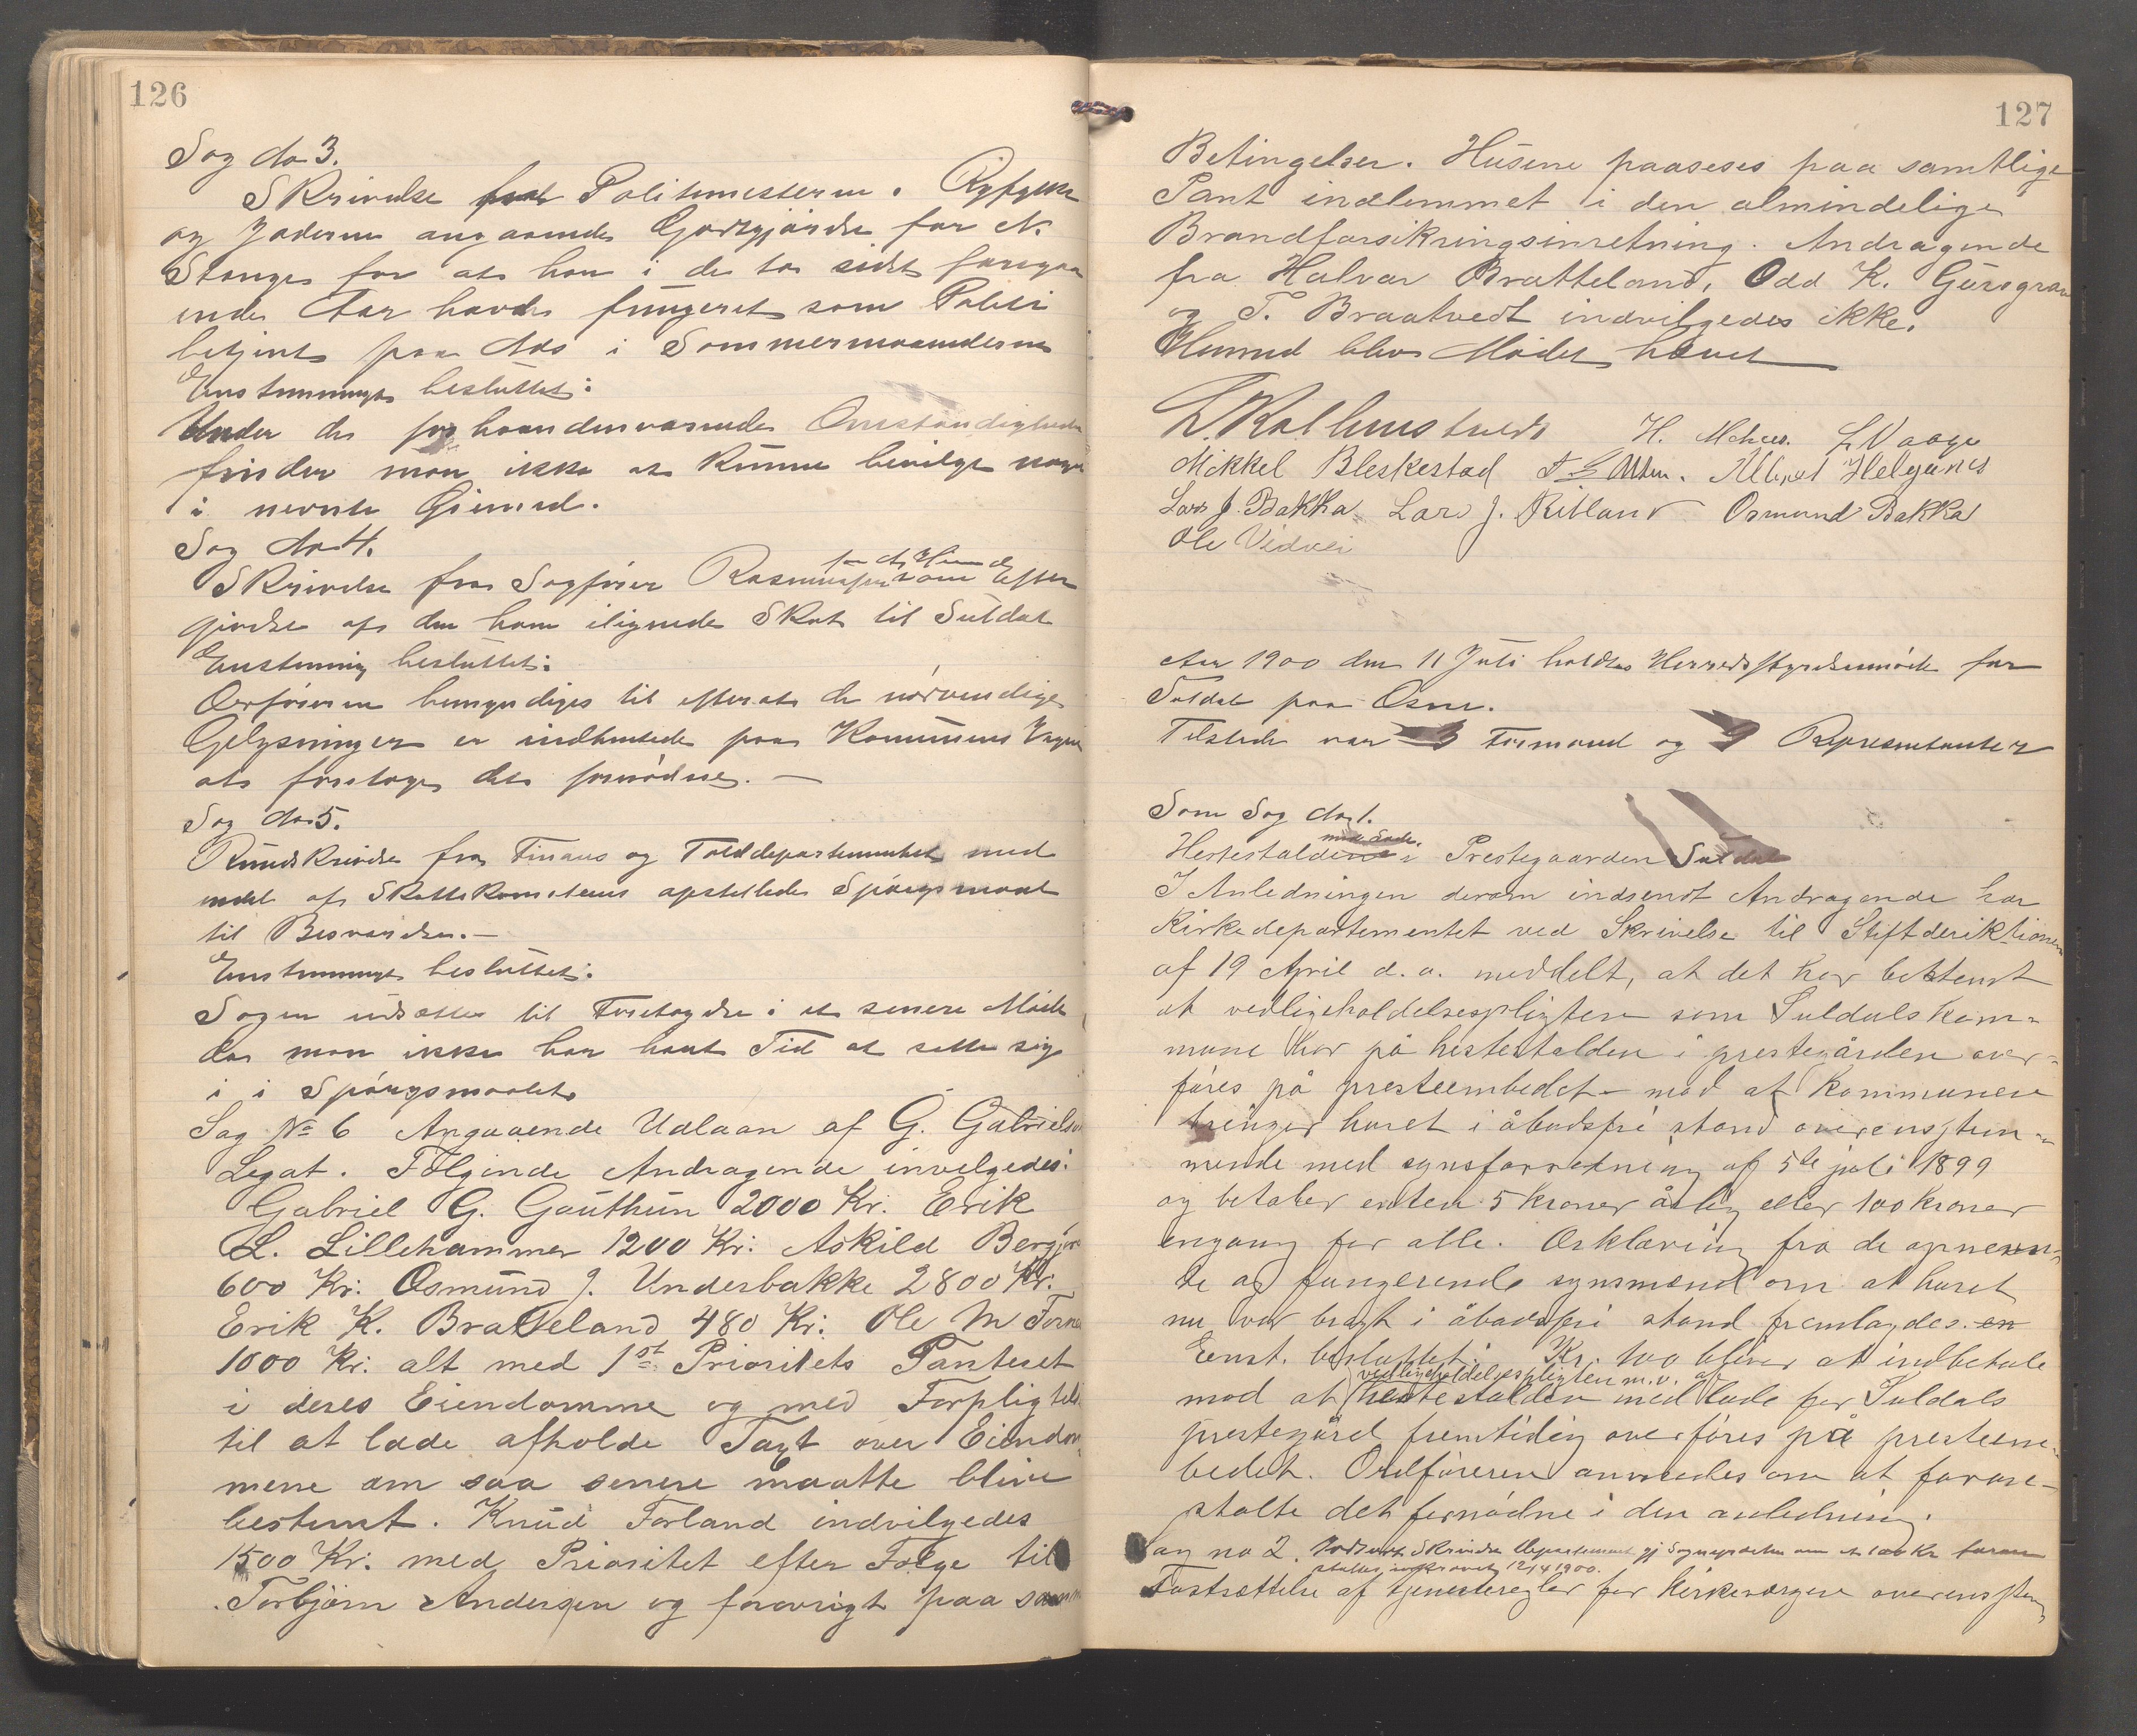 126
Sag No 3.
Skrivelse fra Politimesteren i Ryfylke
og Jæderen angaaende Godtgjørelse for N.
Stange for at han i de to sidst foregaa
ende Aar havde fungeret som Politi
betjent paa Nes i Sommermaanederne
Enstemmigt besluttet:
Under de forhaandenværende Omstændigheder
finder man ikke at kunne bevilge noget
i nevnte Øiemed.
Sag No 4.
Skrivelse fra Sagfører Rasmussen om Efter
givelse af den ham ilignede Skat til Suldal
Enstemmig besluttet:
Ordføreren bemyndiges til efterat de nødvendige
Oplysninger er indhentede paa Kommunens Vegne
at foretage det fornødne. —
Sag No 5.
Rundskrivelse fra Finans og Tolddepartementet med
endel af Skattekomiteens opstillede Spørgsmaal
til Besvarelse. —
Enstemmigt besluttet:
Sagen udsættes til Foretagelse i et senere Møde
da man ikke har havt Tid at sette sig
i i Spørgsmaalet
Sag No 6 Angaaende Udlaan af G. Gabrielsens
Legat. Følginde Andragende invelgedes:
Gabriel G. Gauthun 2000 Kr. Erik
L. Lillehammer 1200 Kr: Askild
600 Kr: Osmund J. Underbakke 2800 Kr.
Erik K. Bratteland 480 Kr: Ole M
1000 Kr: alt med 1st Prioritets Panteret
i deres Eiendomme og med Forpligtelse
til at lade afholde Taxt over Eiendom
mene om saa senere maatte blive
bestemt. Knud Førland indvilgedes
1500 Kr: med Prioritet efter Følge til
Torbjørn Andersen og forøvrigt paa samme
127
Betingelser. Husene paaseses paa samtlige
Pant indlemmet i den almindelige
Brandforsikringsinretning. Andragende
fra Halvar Bratteland, Odd K.
og T. Braatvedt indvilgedes ikke.
Hermed blev Mødet hævet
H. L Vaage
Mikkel Bleskestad Helganes
Lars J. Bakka Lars J. Ritland Osmund Bakka
Ole Vedvei
Aar 1900 den 11 Juli holdtes Herredsstyrelsemøde for
Suldal paa Osen.
Tilstede var 3 Formænd og 9 Representanter
Som Sag No 1.
med Lade.
Hestestalden i Prestegaarden Suldal
I Anledningen derom indsendt Andragende har
Kirkedepartementet ved Skrivelse til Stiftderiktionen
af 19 April d. a. meddelt, at det har bestemt
at vedligeholdelsespligten som Suldals kom-
mune har på hestestalden i prestegården over-
føres på presteembedet mod at kommunen
bringer huset i åbodsfri stand overensstem-
mende med synsforretning af 5te juli 1899
og betaler enten 5 kroner årlig eller 100 kroner
engang for alle. Erklæring fra de opnevn-
te og fungerende synsmænd om at huset
nu var bragt i åbodsfri stand fremlagdes. en
Enst. besluttet: Kr. 100 bliver at indbetale
vedligeholdelsespligten m.v. af
mod at hestestalden med lade for Suldals
prestegård fremtidig overføres på presteem-
bedet. Ordføreren anmodes om at foran-
stalte det fornødne i den anledning.
Sag no 2. Skrivelse Departement gj Sogneprsten om at 100 Kr
12/4 1900.
Fastsættelse af tjenesteregler for kirkeværgen overensstem